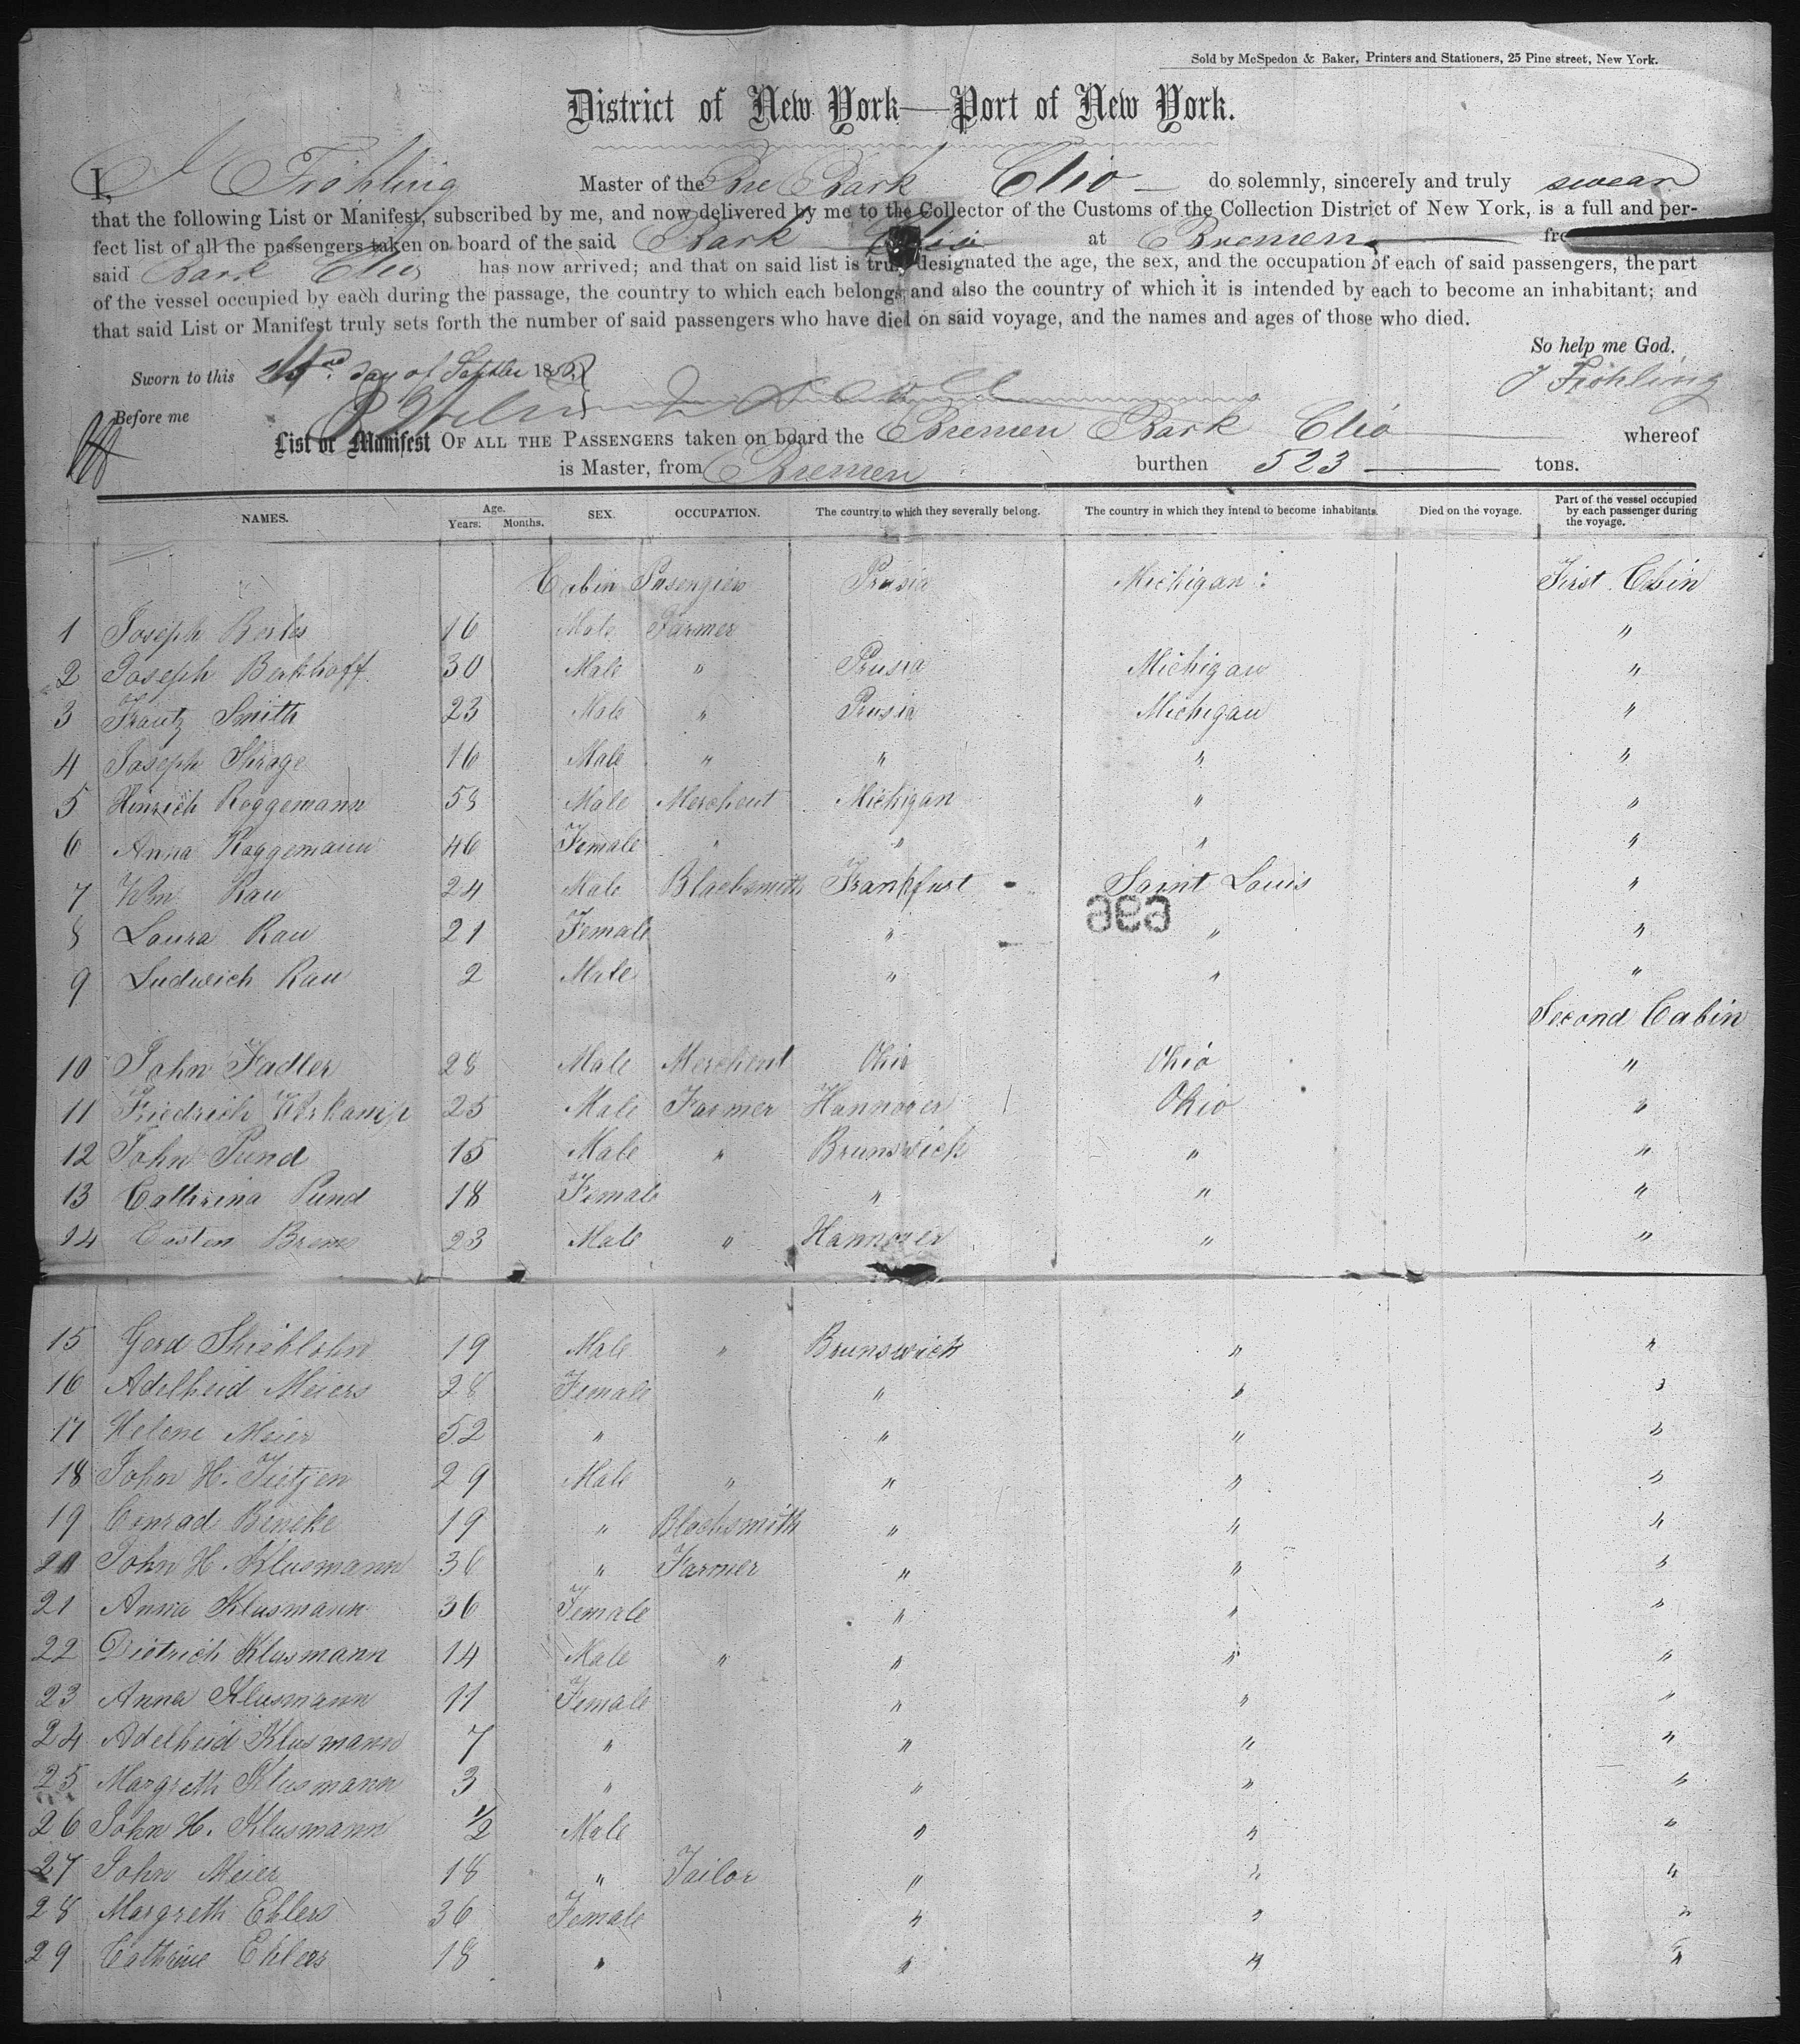 Sold by McSpedon & Baker, Printers and Stationers, 25 Pine street, New York.
District of New York—Port of New York.
I, J Fröhling Master of the Bre Bark Clio do solemnly, sincerely and truly swear
that the following List or Manifest, subscribed by me, and now delivered by me to the Collector of the Customs of the Collection District of New York, is a full and per-
fect list of all the passengers taken on board of the said Bark Clio at Bremen
said Bark Clio has now arrived; and that on said list is truly designated the age, the sex, and the occupation of each of said passengers, the part
of the vessel occupied by each during the passage, the country to which each belongs and also the country of which it is intended by each to become an inhabitant; and
that said List or Manifest truly sets forth the number of said passengers who have died on said voyage, and the names and ages of those who died.
So help me God.
Sworn to this day of 18 J Fröhling
Before me
List or Manifest OF ALL THE PASSENGERS taken on board the Bremen Bark Clio whereof
is Master, from Bremen burthen 523 tons.
NAMES. Age. Years. Months. SEX. OCCUPATION. The country to which they severally belong. The country in which they intend to become inhabitants. Died on the voyage. Part of the vessel occupied by each passenger during the voyage.
Cabin Prusia Michigan : First Cabin
1 Joseph 16 Male Farmer "
2 Joseph Berkhoff 30 Male " Prusia Michigan "
3 Frantz Smith 23 Male " Prusia Michigan "
4 Joseph Shrage 16 Male " " " "
5 Hinrich Roggemann 53 Male Merchent Michigan " "
6 Anna Roggemann 46 Female " " " "
7 Wm Rau 24 Male Blacksmith Frankfurt Saint Louis "
8 Laura Rau 21 Female " " "
9 Ludwich Rau 2 Male " " "
Second Cabin
10 John Fadler 28 Male Merchent Ohio Ohio "
11 Friedrich 25 Male Farmer Hannover Ohio "
12 John Pund 15 Male " Brunswick " "
13 Cathrina Pund 18 Female " " "
14 Casten Brems 23 Male " Hannover " "
15 Gerd 19 Male " Brunswick " "
16 Adelheid Meiers 28 Female " " "
17 Helene Meier 52 " " " "
18 John H. Tietjen 29 Male " " " "
19 Conrad Beneke 19 " Blacksmith " " "
20 John H. Klusmann 36 " Farmer " " "
21 Anna Klusmann 36 Female " " "
22 Dietrich Klusmann 14 Male " " " "
23 Anna Klusmann 11 Female " " "
24 Adelheid Klusmann 7 " " " "
25 Margreth Klusmann 3 " " " "
26 John H. Klusmann 1/2 Male " " "
27 John Meier 18 " Tailor " " "
28 Margreth Ehlers 36 Female " " "
29 Cathrine Ehlers 18 " " " "